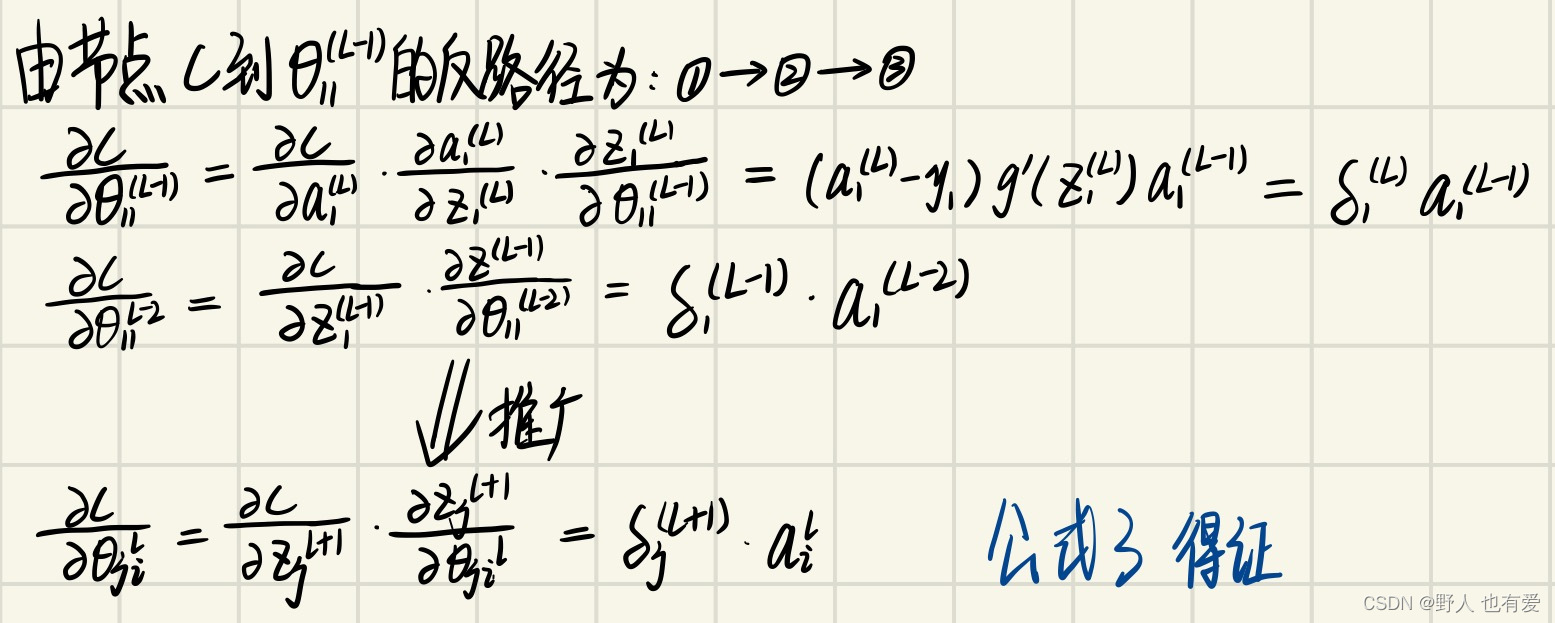 由节点 C到 θ₁₁^(L-1) 的反路径为: ①→②→③
∂C/∂θ₁₁^(L-1) = ∂C/∂a₁^(L) · ∂a₁^(L)/∂z₁^(L) · ∂z₁^(L)/∂θ₁₁^(L-1) = (a₁^(L)-y₁) g'(z₁^(L)) a₁^(L-1) = δ₁^(L) a₁^(L-1)
∂C/∂θ₁₁^L-2 = ∂C/∂z₁^(L-1) · ∂z^(L-1)/∂θ₁₁^(L-2) = δ₁^(L-1) · a₁^(L-2)
⇓ 推广
∂C/∂θⱼᵢ^l = ∂C/∂zⱼ^l+1 · ∂zⱼ^l+1/∂θⱼᵢ^l = δⱼ^(l+1) · aᵢ^l 公式3 得证
CSDN @野人 也有爱